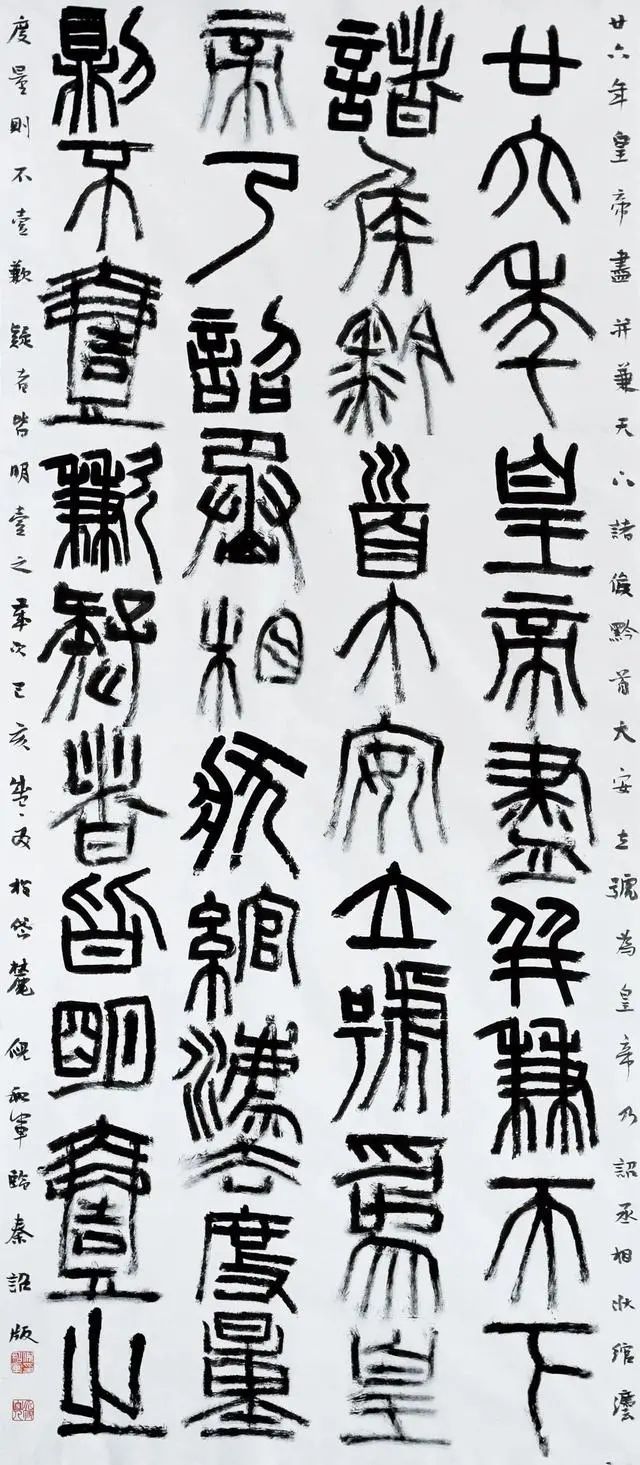 廿六年皇帝盡并兼天下諸侯黔首大安立號為皇帝乃詔丞相狀綰灋
廿六年皇帝盡并兼天下
諸侯黔首大安立號為皇
帝乃詔丞相狀綰灋度量
則不壹歉疑者皆明壹之
度量則不壹歉疑者皆明壹之歲次己亥於岱麓倪和軍臨秦詔版